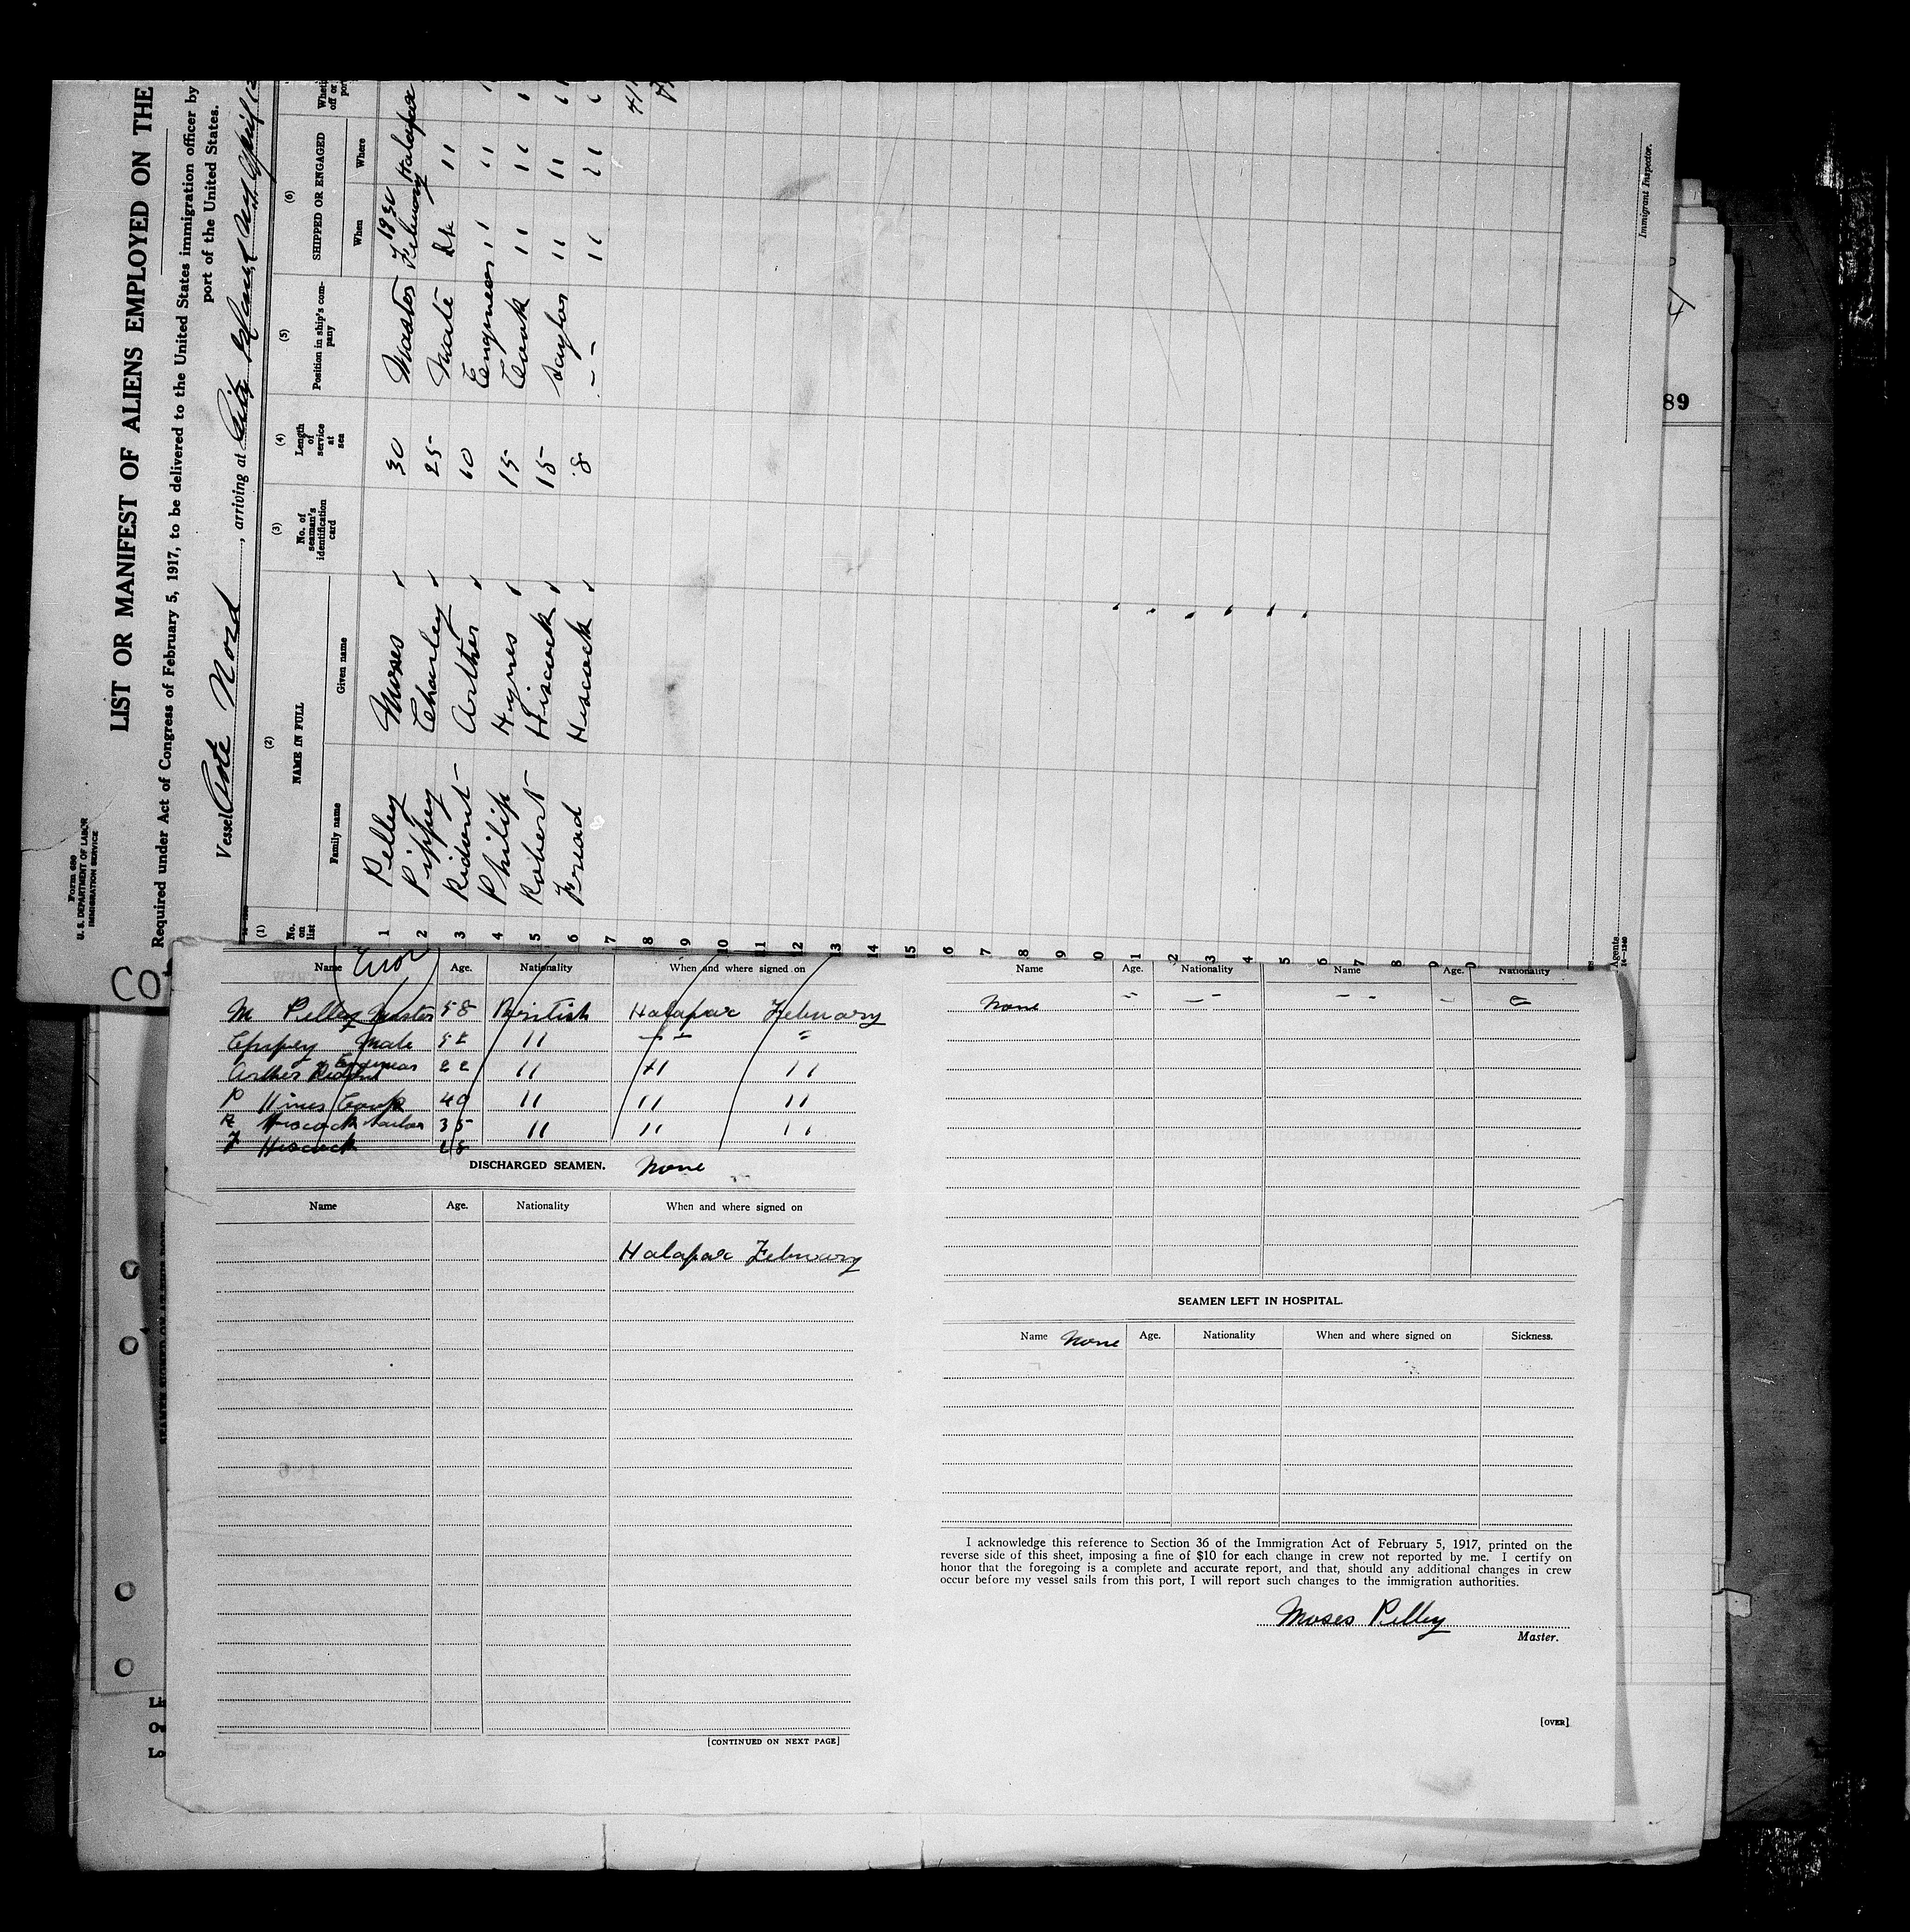 Form 680
U. S. DEPARTMENT OF LABOR
IMMIGRATION SERVICE
LIST OR MANIFEST OF ALIENS EMPLOYED ON THE
Required under Act of Congress of February 5, 1917, to be delivered to the United States immigration officer by
port of the United States.
Vessel Nord, arriving at City Island N.Y. April
(1) (2) (3) (4) (5) (6)
No. on list
NAME IN FULL
Family name Given name
No. of seaman's identification card
Length of service at sea
Position in ship's company
SHIPPED OR ENGAGED
When Where
1930
1 Pelley Moses 30 Master February Halafax
2 Pippey Charley 25 Mate " "
3 Ridout Arther 10 Engineer " "
4 Philip Hynes 15 Cook " "
5 Robert Hiscock 15 Saylor " "
6 Friad Hiscock 8 - - " "
7
8
9
10
11
12
13
14
15
16
7
8
9
0
1
2
3
4
5
6
7
8
9
0
Immigrant Inspector.
Agents
89
CO
Error
Name Age. Nationality When and where signed on
M Pelley Master 58 British Halafax Febuary
Mate 52 "
Arther Ridout Engineer 22 " " "
P Hines Cook 40 " " "
R Hiscock Sailor 35 " " "
F Hiscock 28
DISCHARGED SEAMEN. None
Name Age. Nationality When and where signed on
Halafax Febuary
[CONTINUED ON NEXT PAGE]
Name Age. Nationality Name Age. Nationality
None - - - - - - -
SEAMEN LEFT IN HOSPITAL.
Name None Age. Nationality When and where signed on Sickness.
I acknowledge this reference to Section 36 of the Immigration Act of February 5, 1917, printed on the
reverse side of this sheet, imposing a fine of $10 for each change in crew not reported by me. I certify on
honor that the foregoing is a complete and accurate report, and that, should any additional changes in crew
occur before my vessel sails from this port, I will report such changes to the immigration authorities.
Moses Pelley
Master.
[OVER]